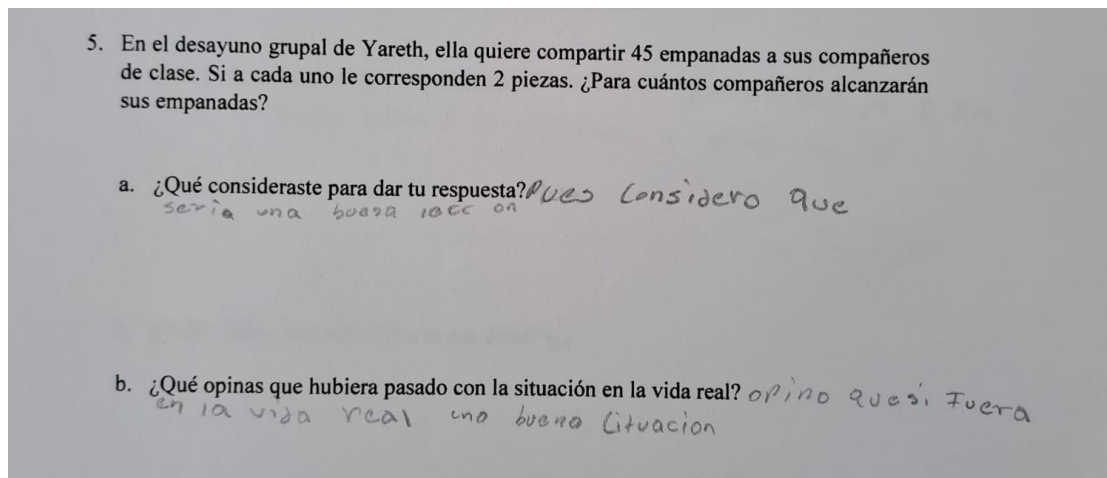 5. En el desayuno grupal de Yareth, ella quiere compartir 45 empanadas a sus compañeros
de clase. Si a cada uno le corresponden 2 piezas. ¿Para cuántos compañeros alcanzarán
sus empanadas?
a. ¿Qué consideraste para dar tu respuesta? Pues Considero que
seria una buena
b. ¿Qué opinas que hubiera pasado con la situación en la vida real? opino que si Fuera
en la vida real una buena Cituacion